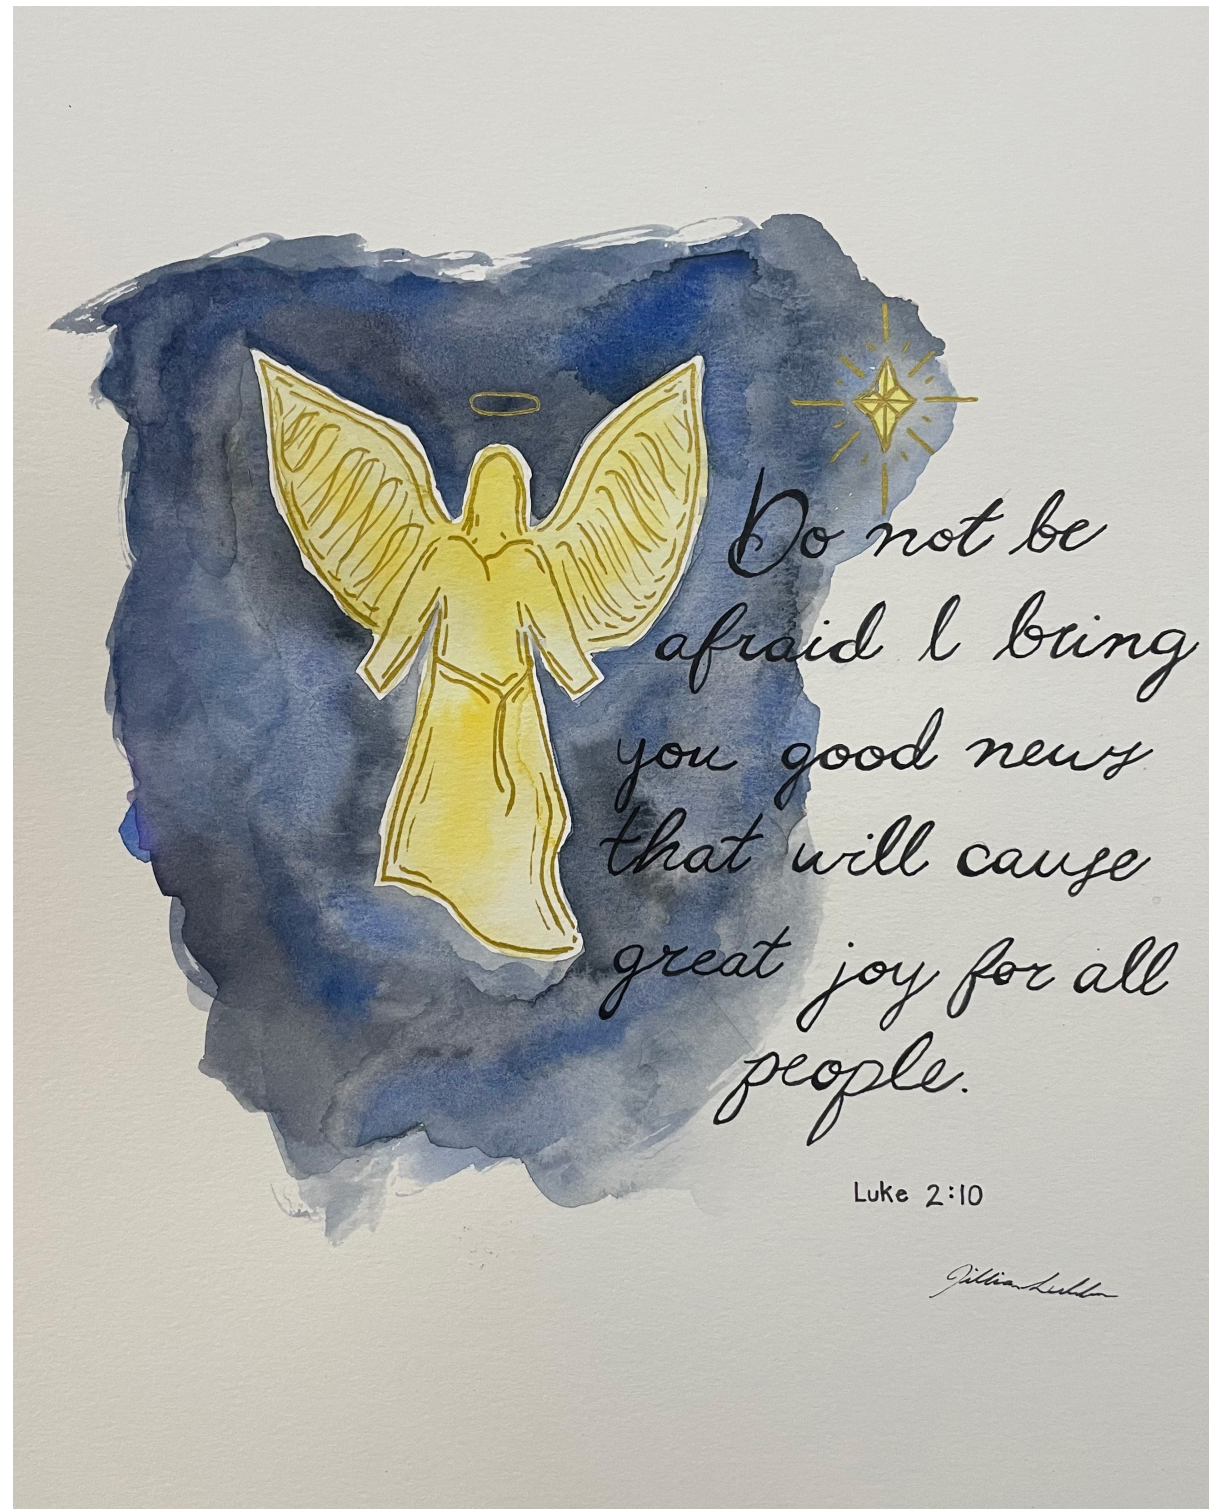 Do not be
afraid I bring
you good news
that will cause
great joy for all
people.
Luke 2:10
Jillian